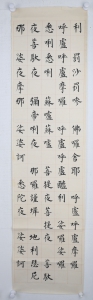 利 罰沙罰嘇 佛囉舍耶
呼嚧呼嚧摩囉 呼嚧呼嚧醯利 娑囉娑囉
悉唎悉唎 蘇嚧蘇嚧 菩提夜菩提
夜菩馱夜菩馱夜 彌帝唎夜 那囉謹墀 地利瑟尼
那 婆夜摩那 娑婆訶 悉陀夜 娑婆訶